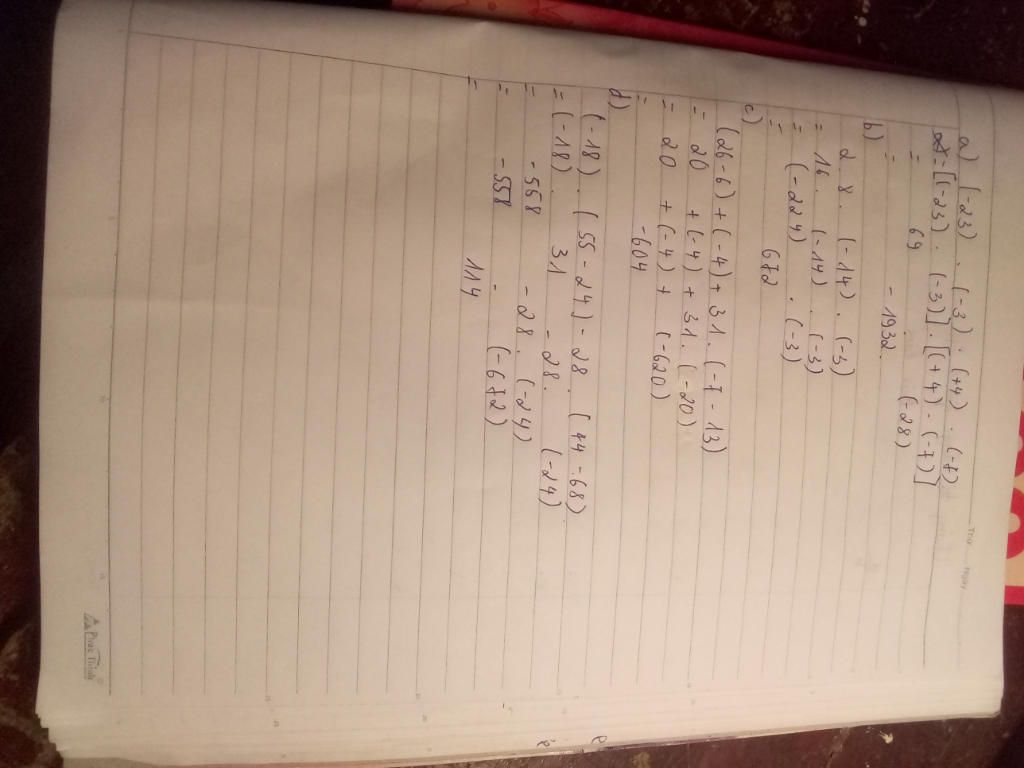 Thứ Ngày
a) (-23) . (-3) . (+4) . (-7)
= [(-23) . (-3)] . [(+4) . (-7)]
= 69 . (-28)
= -1932.
b) 2.8. (-14) . (-3)
= 16. (-14) . (-3)
= (-224) . (-3)
= 672
c) (26-6) + (-4) + 31. (-7-13)
= 20 + (-4) + 31. (-20)
= 20 + (-4) + (-620)
= -604
d) (-18) . (55-24) - 28. (44-68)
= (-18) . 31 - 28. (-24)
= -558 - 28. (-24)
= -558 - (-672)
= 114
Phúc Thịnh